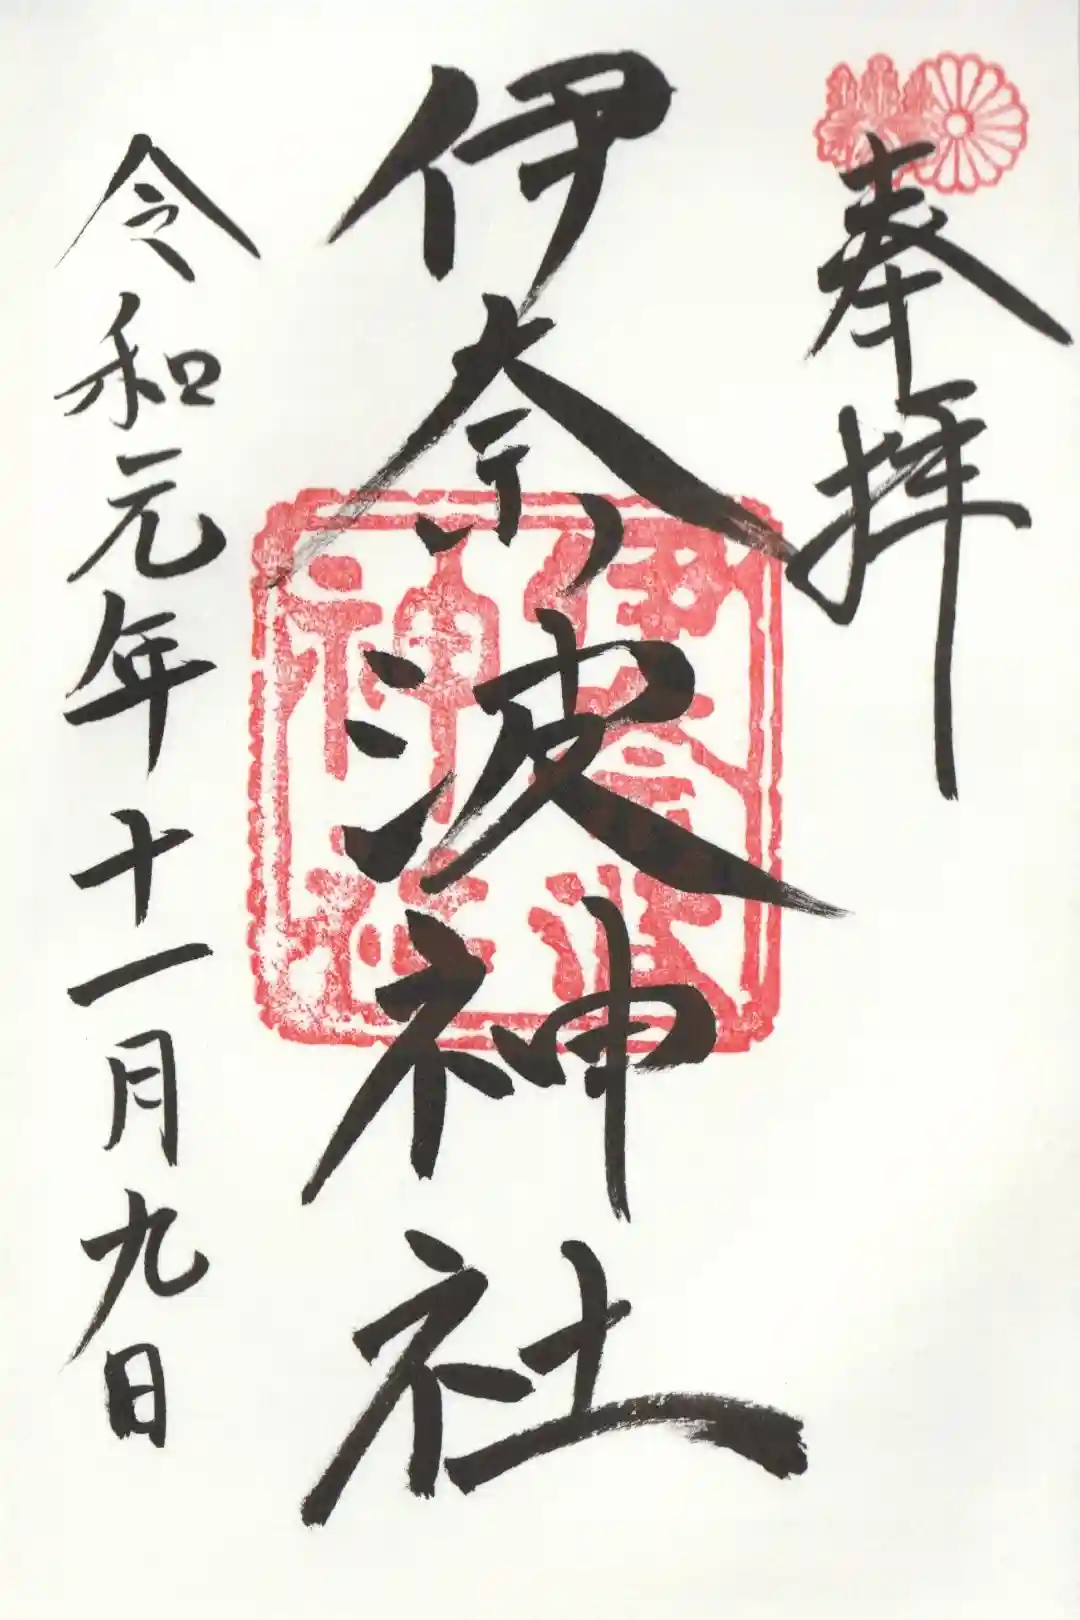 奉拝
伊奈波神社
伊奈波
神社
令和元年十一月九日